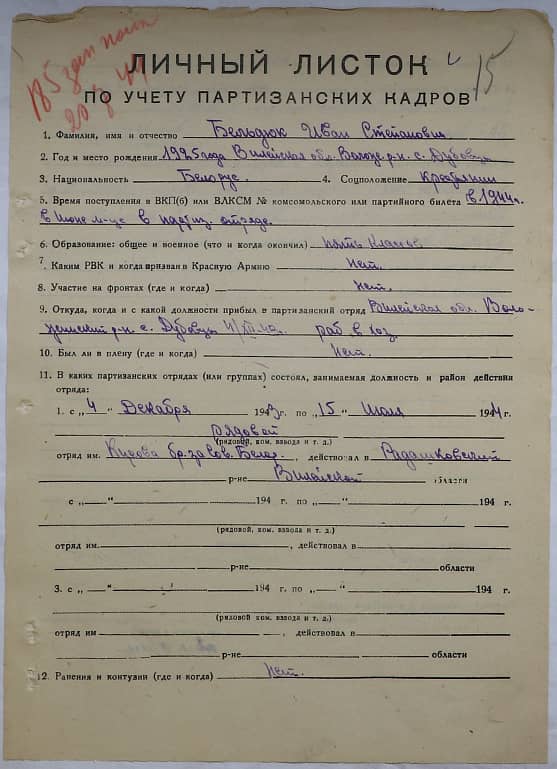 185 зап полк
20/8 44
15
ЛИЧНЫЙ ЛИСТОК
ПО УЧЕТУ ПАРТИЗАНСКИХ КАДРОВ
1. Фамилия, имя и отчество Бельдюк Иван Степанович.
2. Год и место рождения 1925 года Вилейская обл. Волож. р-н. с. Дубовцы
3. Национальность Белорус. 4. Соцположение Крестьянин
5. Время поступления в ВКП(б) или ВЛКСМ № комсомольского или партийного билета в 1944 г.
в Июне м-це в партиз. отряде.
6. Образование: общее и военное (что и когда окончил) пять классов
7. Каким РВК и когда призван в Красную Армию Нет.
8. Участие на фронтах (где и когда) Нет.
9. Откуда, когда и с какой должности прибыл в партизанский отряд Вилейская обл. Воло-
жинский р-н. с. Дубовцы раб в хоз.
10. Был ли в плену (где и когда) Нет.
11. В каких партизанских отрядах (или группах) состоял, занимаемая должность и район действия
отряда:
1. с „4" Декабря 1943 г. по „15" Июля 1944 г.
рядовой
(рядовой, ком. взвода и т. д.)
отряд им. Кирова бр. за Сов. Белор., действовал в Радашковский
р-не Вилейской области
с „ " 194 г. по „ " 194 г.
(рядовой, ком. взвода и т. д.)
отряд им. , действовал в
р-не области
3. с „ " 194 г. по „ " 194 г.
(рядовой, ком. взвода и т. д.)
отряд им , действовал в
р-не области
12. Ранения и контузии (где и когда) Нет.